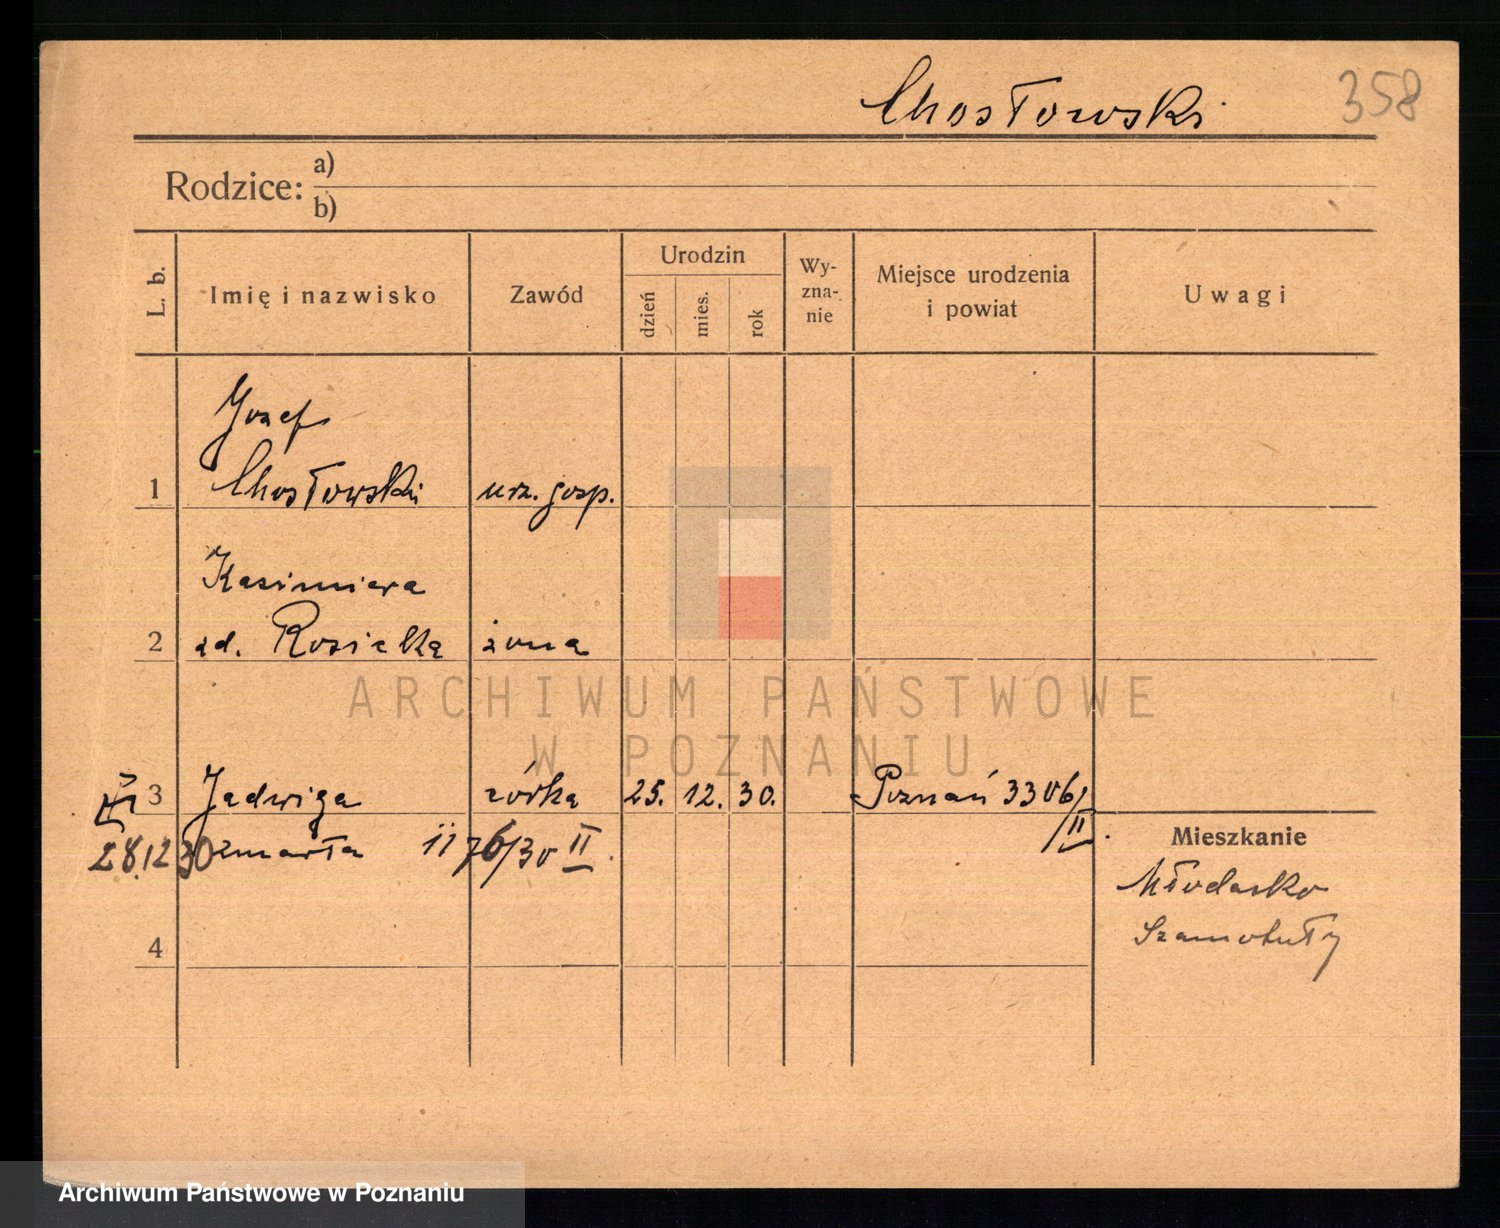 Chosłowski 358
Rodzice: a)
b)
L. b. Imię i nazwisko Zawód Urodzin dzień mies. rok Wy-zna-nie Miejsce urodzenia i powiat Uwagi
Jozef
1 Chosłowski urz. gosp.
Kazimiera
2 zd. Rosielka żona
ARCHIWUM PAŃSTWOWE
W POZNANIU
3 Jadwiga córka 25. 12. 30. Poznań 3306/
II.
28.12 30 zmarła 1176/30 II.
Mieszkanie
Młodasko
Szamotuły
4
Archiwum Państwowe w Poznaniu